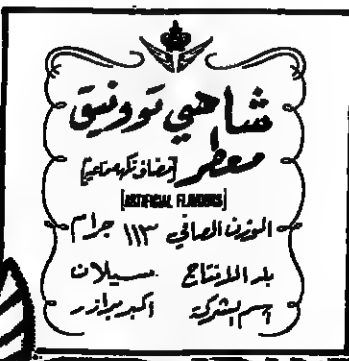 شاهي توونيق
معطر [مضاف نكهة صناعي]
[ARTIFICIAL FLAVOURS]
الوزن الصافي ١١٣ جرام
بلد الانتاج سيلان
اسم الشركة اكبر برازرز